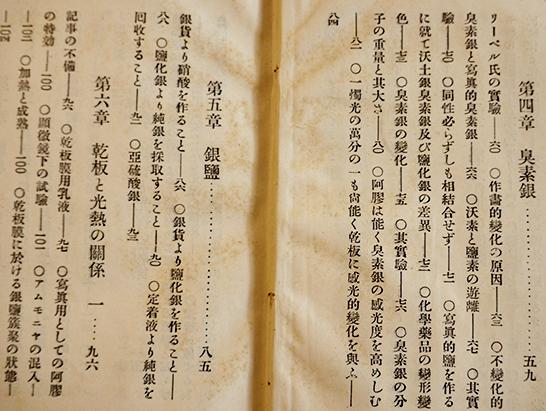 第四章　臭素銀……………五九
リーベル氏の實驗——六〇　〇作畵的變化の原因——六三　〇不變化的
臭素銀と寫眞的臭素銀——六六　〇沃素と鹽素の遊離——六七　〇其實
驗——七〇　〇同性必らずしも相結合せず——七一　〇寫眞的鹽を作る
に就て沃土銀臭素銀及び鹽化銀の差異——七三　〇化學藥品の變形變
色——七三　〇臭素銀の變化——七五　〇其實驗——七六　〇臭素銀の分
子の重量と其大さ——八〇　〇阿膠は能く臭素銀の感光度を高めしむ
——八二　〇一燭光の萬分の一も尙能く乾板に感光的變化を與ふ——
八四
第五章　銀鹽……………八五
銀貨より硝酸を作ること——八六　〇銀貨より鹽化銀を作ること——
八八　〇鹽化銀より純銀を採取すること——九〇　〇定着液より純銀を
回收すること——九二　〇亞硫酸銀——九三
第六章　乾板と光熱の關係　一……九六
記事の不備——九六　〇乾板膜用乳液——九七　〇寫眞用としての阿膠
の特効——一〇〇　〇顯微鏡下の試驗——一〇一　〇アムモニヤの混入—
—一〇二　〇加熱と成熟——一〇〇　〇乾板膜に於ける銀鹽簇聚の狀態—
—一〇四